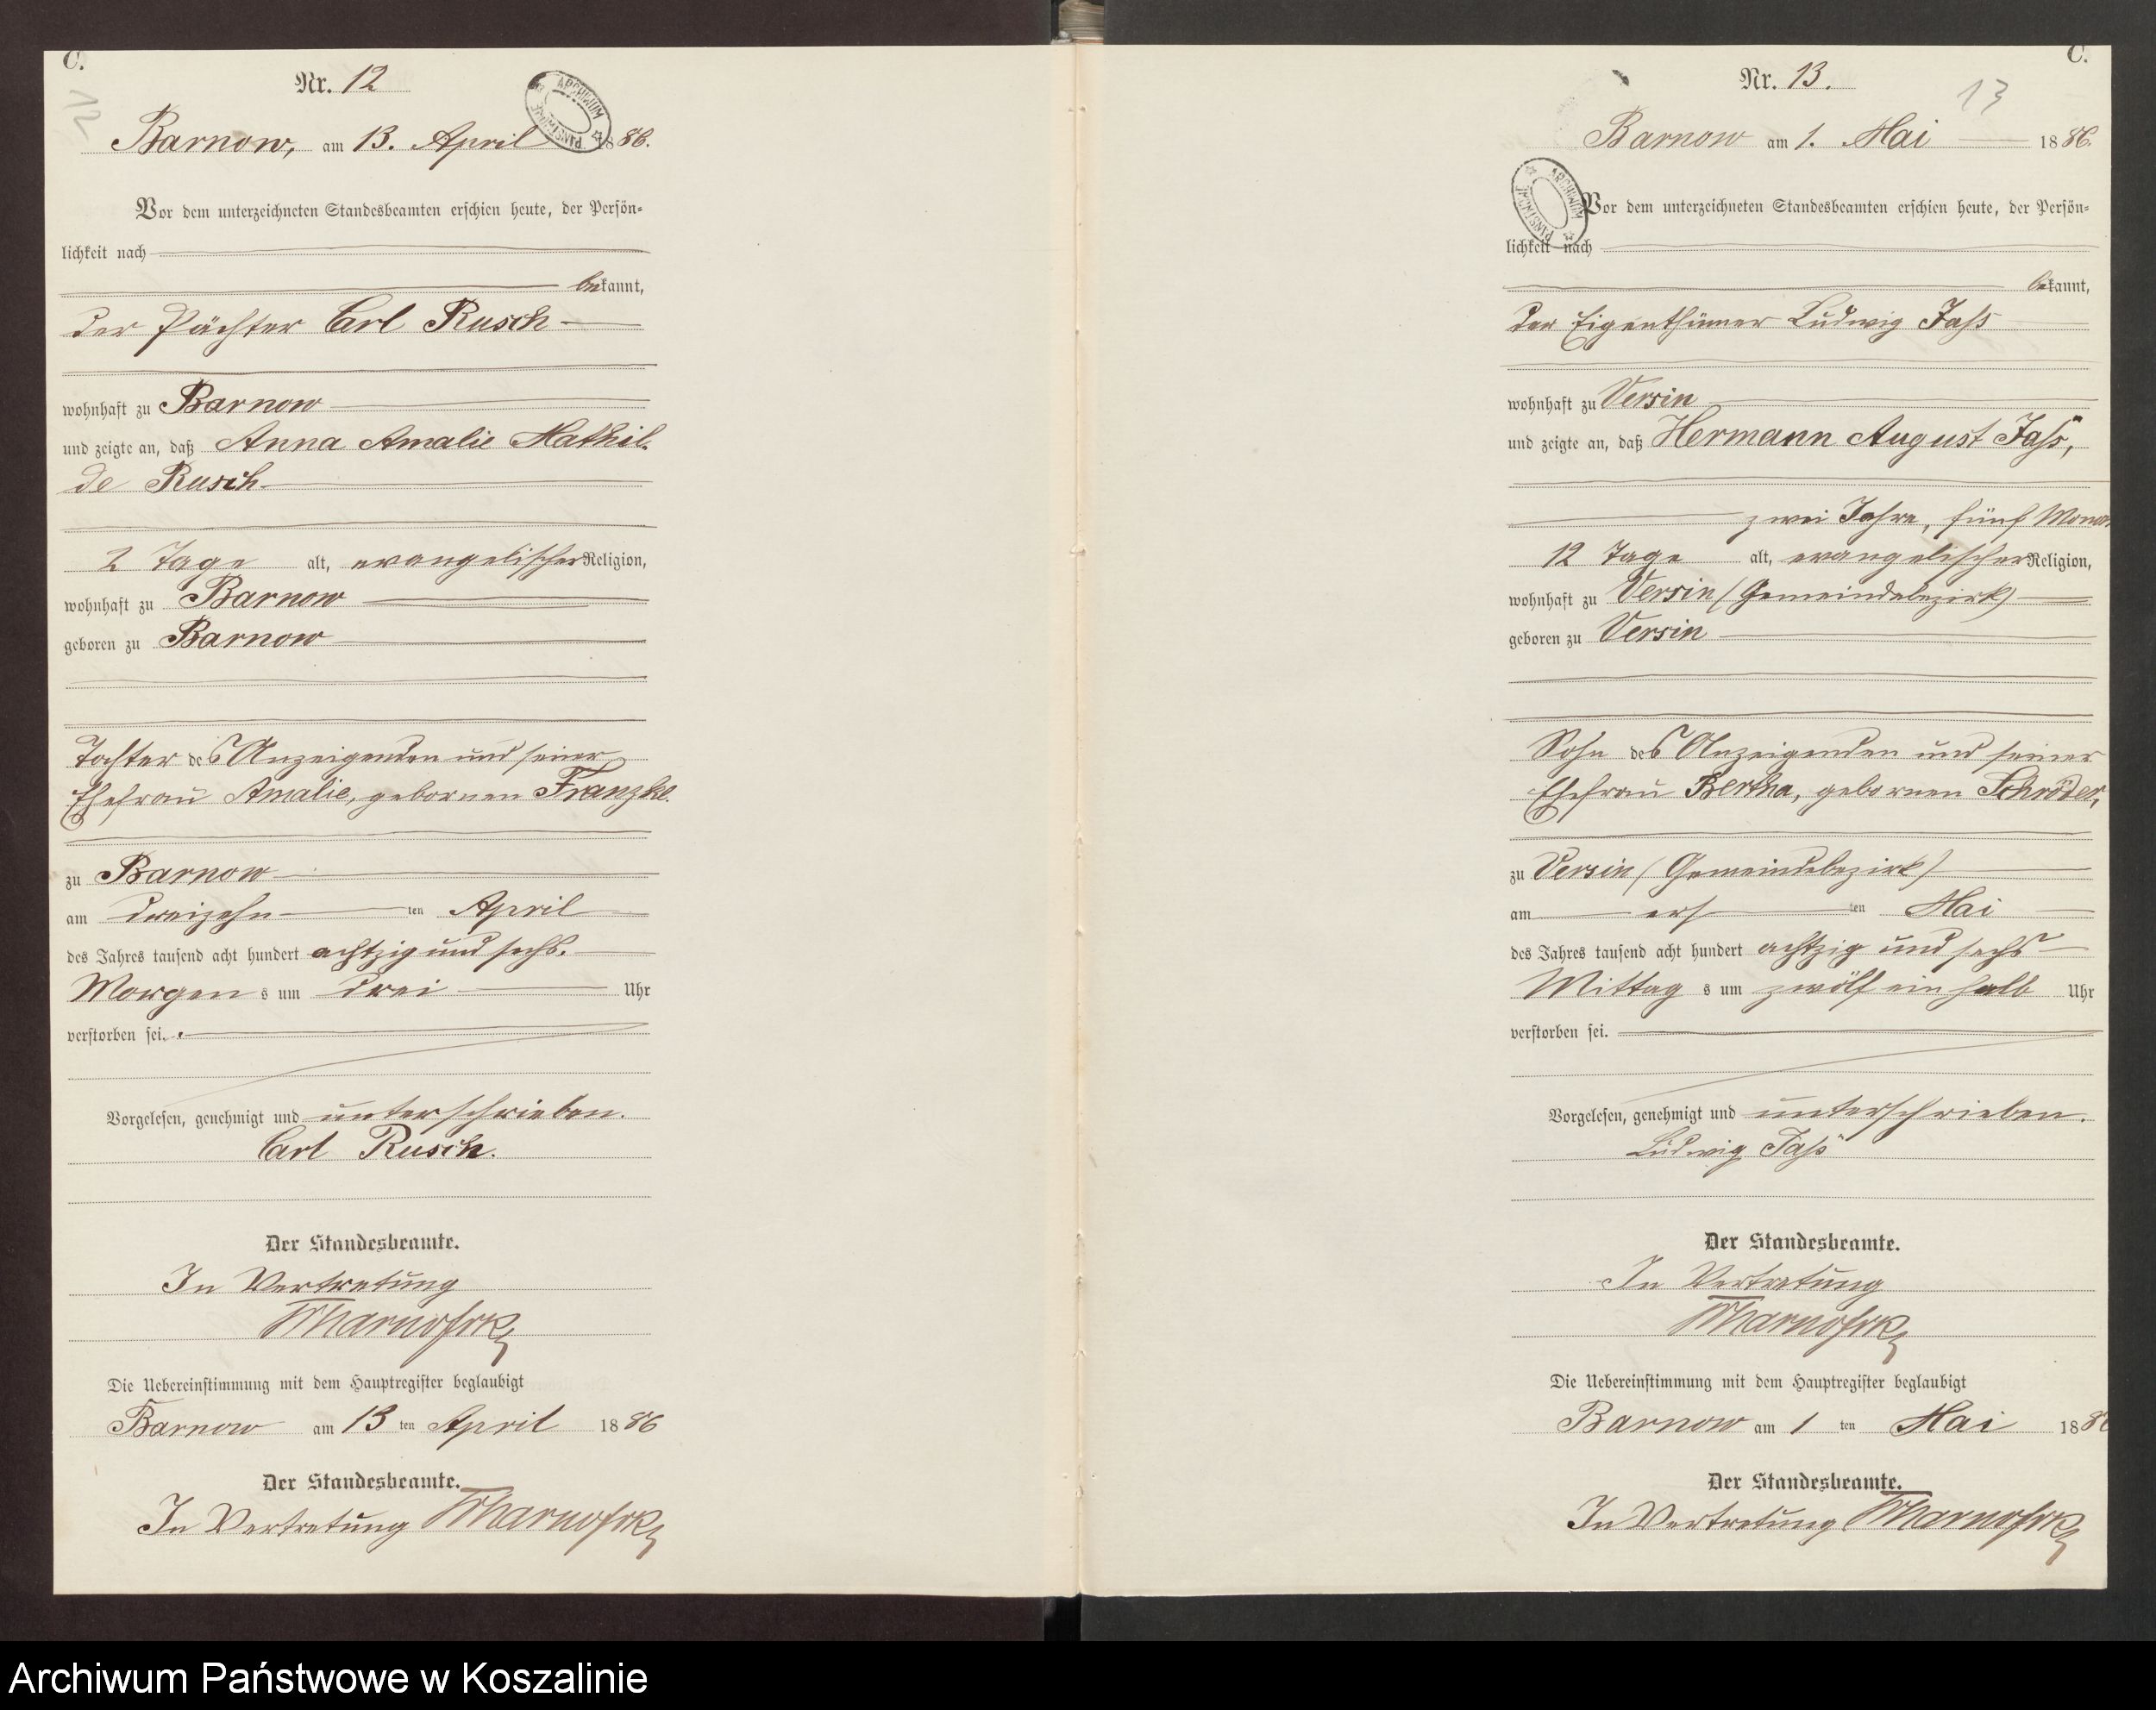 C.
Nr. 12
12
ARCHIWUM PAŃSTWOWE
Barnow, am 13. April 1886.
Vor dem unterzeichneten Standesbeamten erschien heute, der Persön-
lichkeit nach
bekannt,
der Pächter Carl Rusch
wohnhaft zu Barnow
und zeigte an, daß Anna Amalie Mathil-
de Rusch
2 Tage alt, evangelischer Religion,
wohnhaft zu Barnow
geboren zu Barnow
Tochter des Anzeigenden und seiner
Ehefrau Amalie, gebornen Franzke.
zu Barnow
am dreizehn ten April
des Jahres tausend acht hundert achtzig und sechs.
Morgens um drei Uhr
verstorben sei.
Vorgelesen, genehmigt und unterschrieben.
Carl Rusch.
Der Standesbeamte.
In Vertretung
Die Uebereinstimmung mit dem Hauptregister beglaubigt
Barnow am 13 ten April 1886
Der Standesbeamte.
In Vertretung
C.
Nr. 13.
13
Barnow am 1. Mai 1886.
ARCHIWUM PAŃSTWOWE
Vor dem unterzeichneten Standesbeamten erschien heute, der Persön-
lichkeit nach
bekannt,
der Eigenthümer Ludwig Jass
wohnhaft zu Versin
und zeigte an, daß Hermann August Jass,
zwei Jahre, fünf Mona
12 Tage alt, evangelischer Religion,
wohnhaft zu Versin (Gemeindebezirk)
geboren zu Versin
Sohn des Anzeigenden und seiner
Ehefrau Bertha, gebornen Schröder,
zu Versin (Gemeindebezirk)
am ersten Mai
des Jahres tausend acht hundert achtzig und sechs
Mittags um zwölf ein halb Uhr
verstorben sei.
Vorgelesen, genehmigt und unterschrieben.
Ludwig Jass
Der Standesbeamte.
In Vertretung
Die Uebereinstimmung mit dem Hauptregister beglaubigt
Barnow am 1 ten Mai 1886
Der Standesbeamte.
In Vertretung
Archiwum Państwowe w Koszalinie